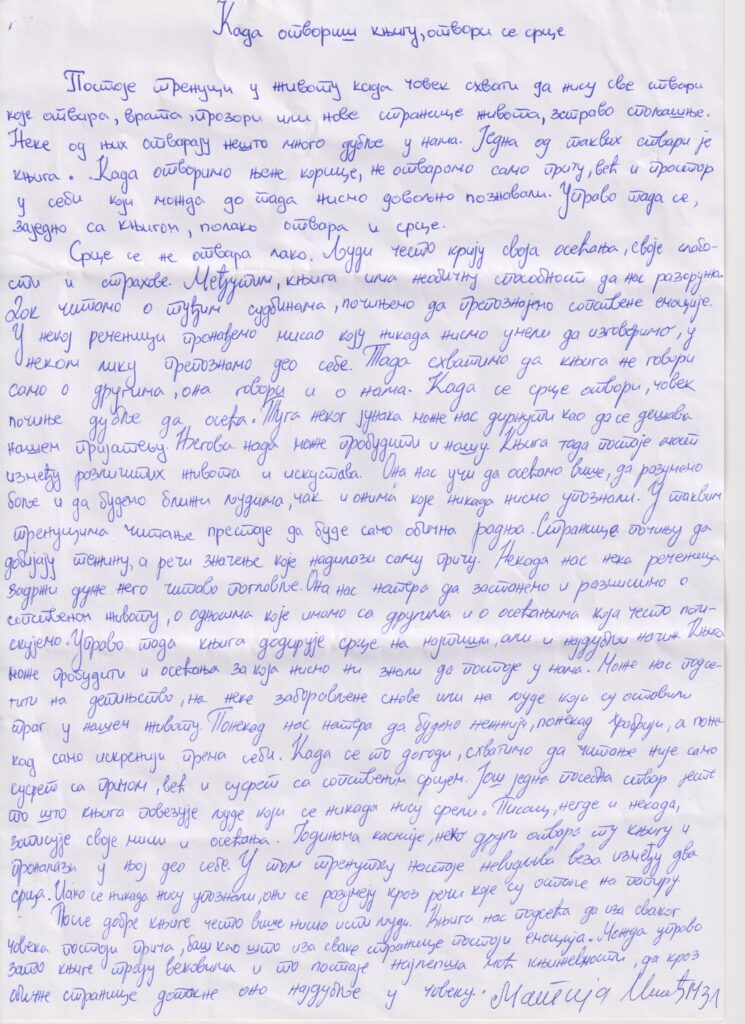 Када отвориш књигу, отвори се срце
Постоје тренуци у животу када човек схвати да нису све ствари
које отвара, врата, прозори или нове странице живота, заправо спољашње.
Неке од њих отварају нешто много дубље у нама. Једна од таквих ствари је
књига. Када отворимо њене корице, не отварамо само причу, већ и простор
у себи који можда до тада нисмо довољно познавали. Управо тада се,
заједно са књигом, полако отвара и срце.
Срце се не отвара лако. Људи често крију своја осећања, своје слабо-
сти и страхове. Међутим, књига има необичну способност да нас разоружа.
Док читамо о туђим судбинама, почињемо да препознајемо сопствене емоције.
У некој реченици пронађемо мисао коју никада нисмо умели да изговоримо, у
неком лику препознамо део себе. Тада схватимо да књига не говори
само о другима, она говори и о нама. Када се срце отвори, човек
почиње дубље да осећа. Туга неког јунака може нас дирнути као да се дешава
нашем пријатељу. Његова нада може пробудити и нашу. Књига тада постаје мост
између различитих живота и искустава. Она нас учи да осећамо више, да разумемо
боље и да будемо ближи људима, чак и онима које никада нисмо упознали. У таквим
тренуцима читање престаје да буде само обична радња. Странице почињу да
добијају тежину, а речи значење које надилази саму причу. Некада нас нека реченица
задржи дуже него читаво поглавље. Она нас натера да застанемо и размислимо о
сопственом животу, о односима које имамо са другима и о осећањима која често поти-
скујемо. Управо тада књига додирује срце на најтиши, али и најдубљи начин. Књига
може пробудити и осећања за која нисмо ни знали да постоје у нама. Може нас подсе-
тити на детињство, на неке заборављене снове или на људе који су оставили
траг у нашем животу. Понекад нас натера да будемо нежнији, понекад храбрији, а поне-
кад само искренији према себи. Када се то догоди, схватимо да читање није само
сусрет са причом, већ и сусрет са сопственим срцем. Још једна посебна ствар јесте
то што књига повезује људе који се никада нису срели. Писац, негде и некада,
записује своје мисли и осећања. Годинама касније, неко други отвара ту књигу и
проналази у њој део себе. У том тренутку настаје невидљива веза између два
срца. Иако се никада нису упознали, они се разумеју кроз речи које су остале на папиру
После добре књиге често више нисмо исти људи. Књига нас подсећа да иза сваког
човека постоји прича, баш као што иза сваке странице постоји емоција. Можда управо
зато књиге трају вековима и то постаје најлепша моћ књижевности, да кроз
обичне странице дотакне оно најдубље у човеку. Матеја